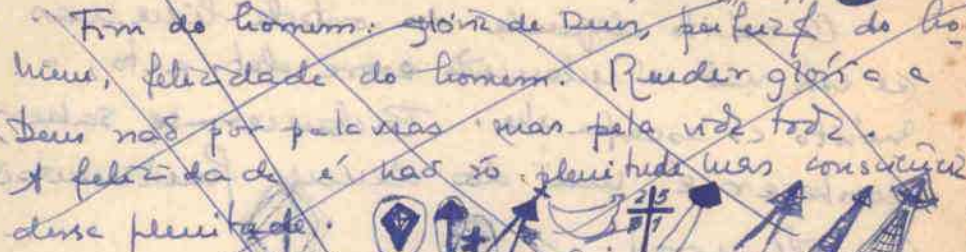 Fim do homem: glória de Deus, perfeiç do ho-
mem, felicidade do homem. Render glória a
Deus não por palavras mas pela vida toda.
A felicidade é não só plenitude mas consciência
dessa plenitude.
25
37